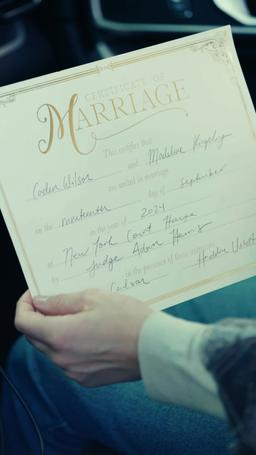 CERTIFICATE OF
MARRIAGE
This certifies that
Caden Wilson and Madeline Kingsley
are united in marriage
on the nineteenth day of September
in the year of 2024
at New York Court House
by Judge Adam Harris
in the presence of these witnesses